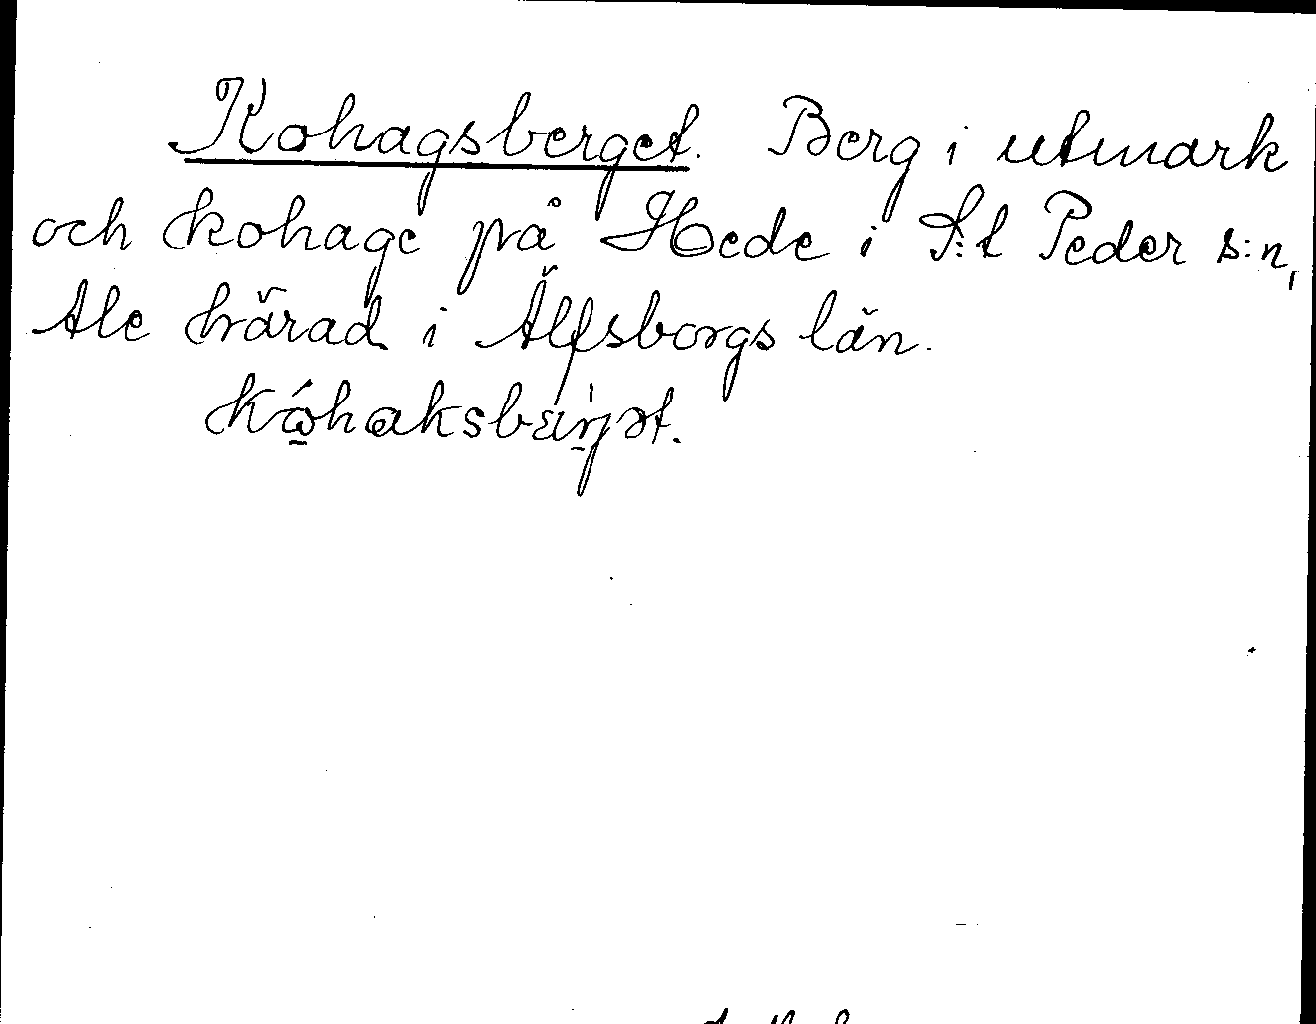 Kohagsberget. Berg i utmark
och kohage på Hede i S:t Peder s:n,
Ale härad i Älfsborgs län.